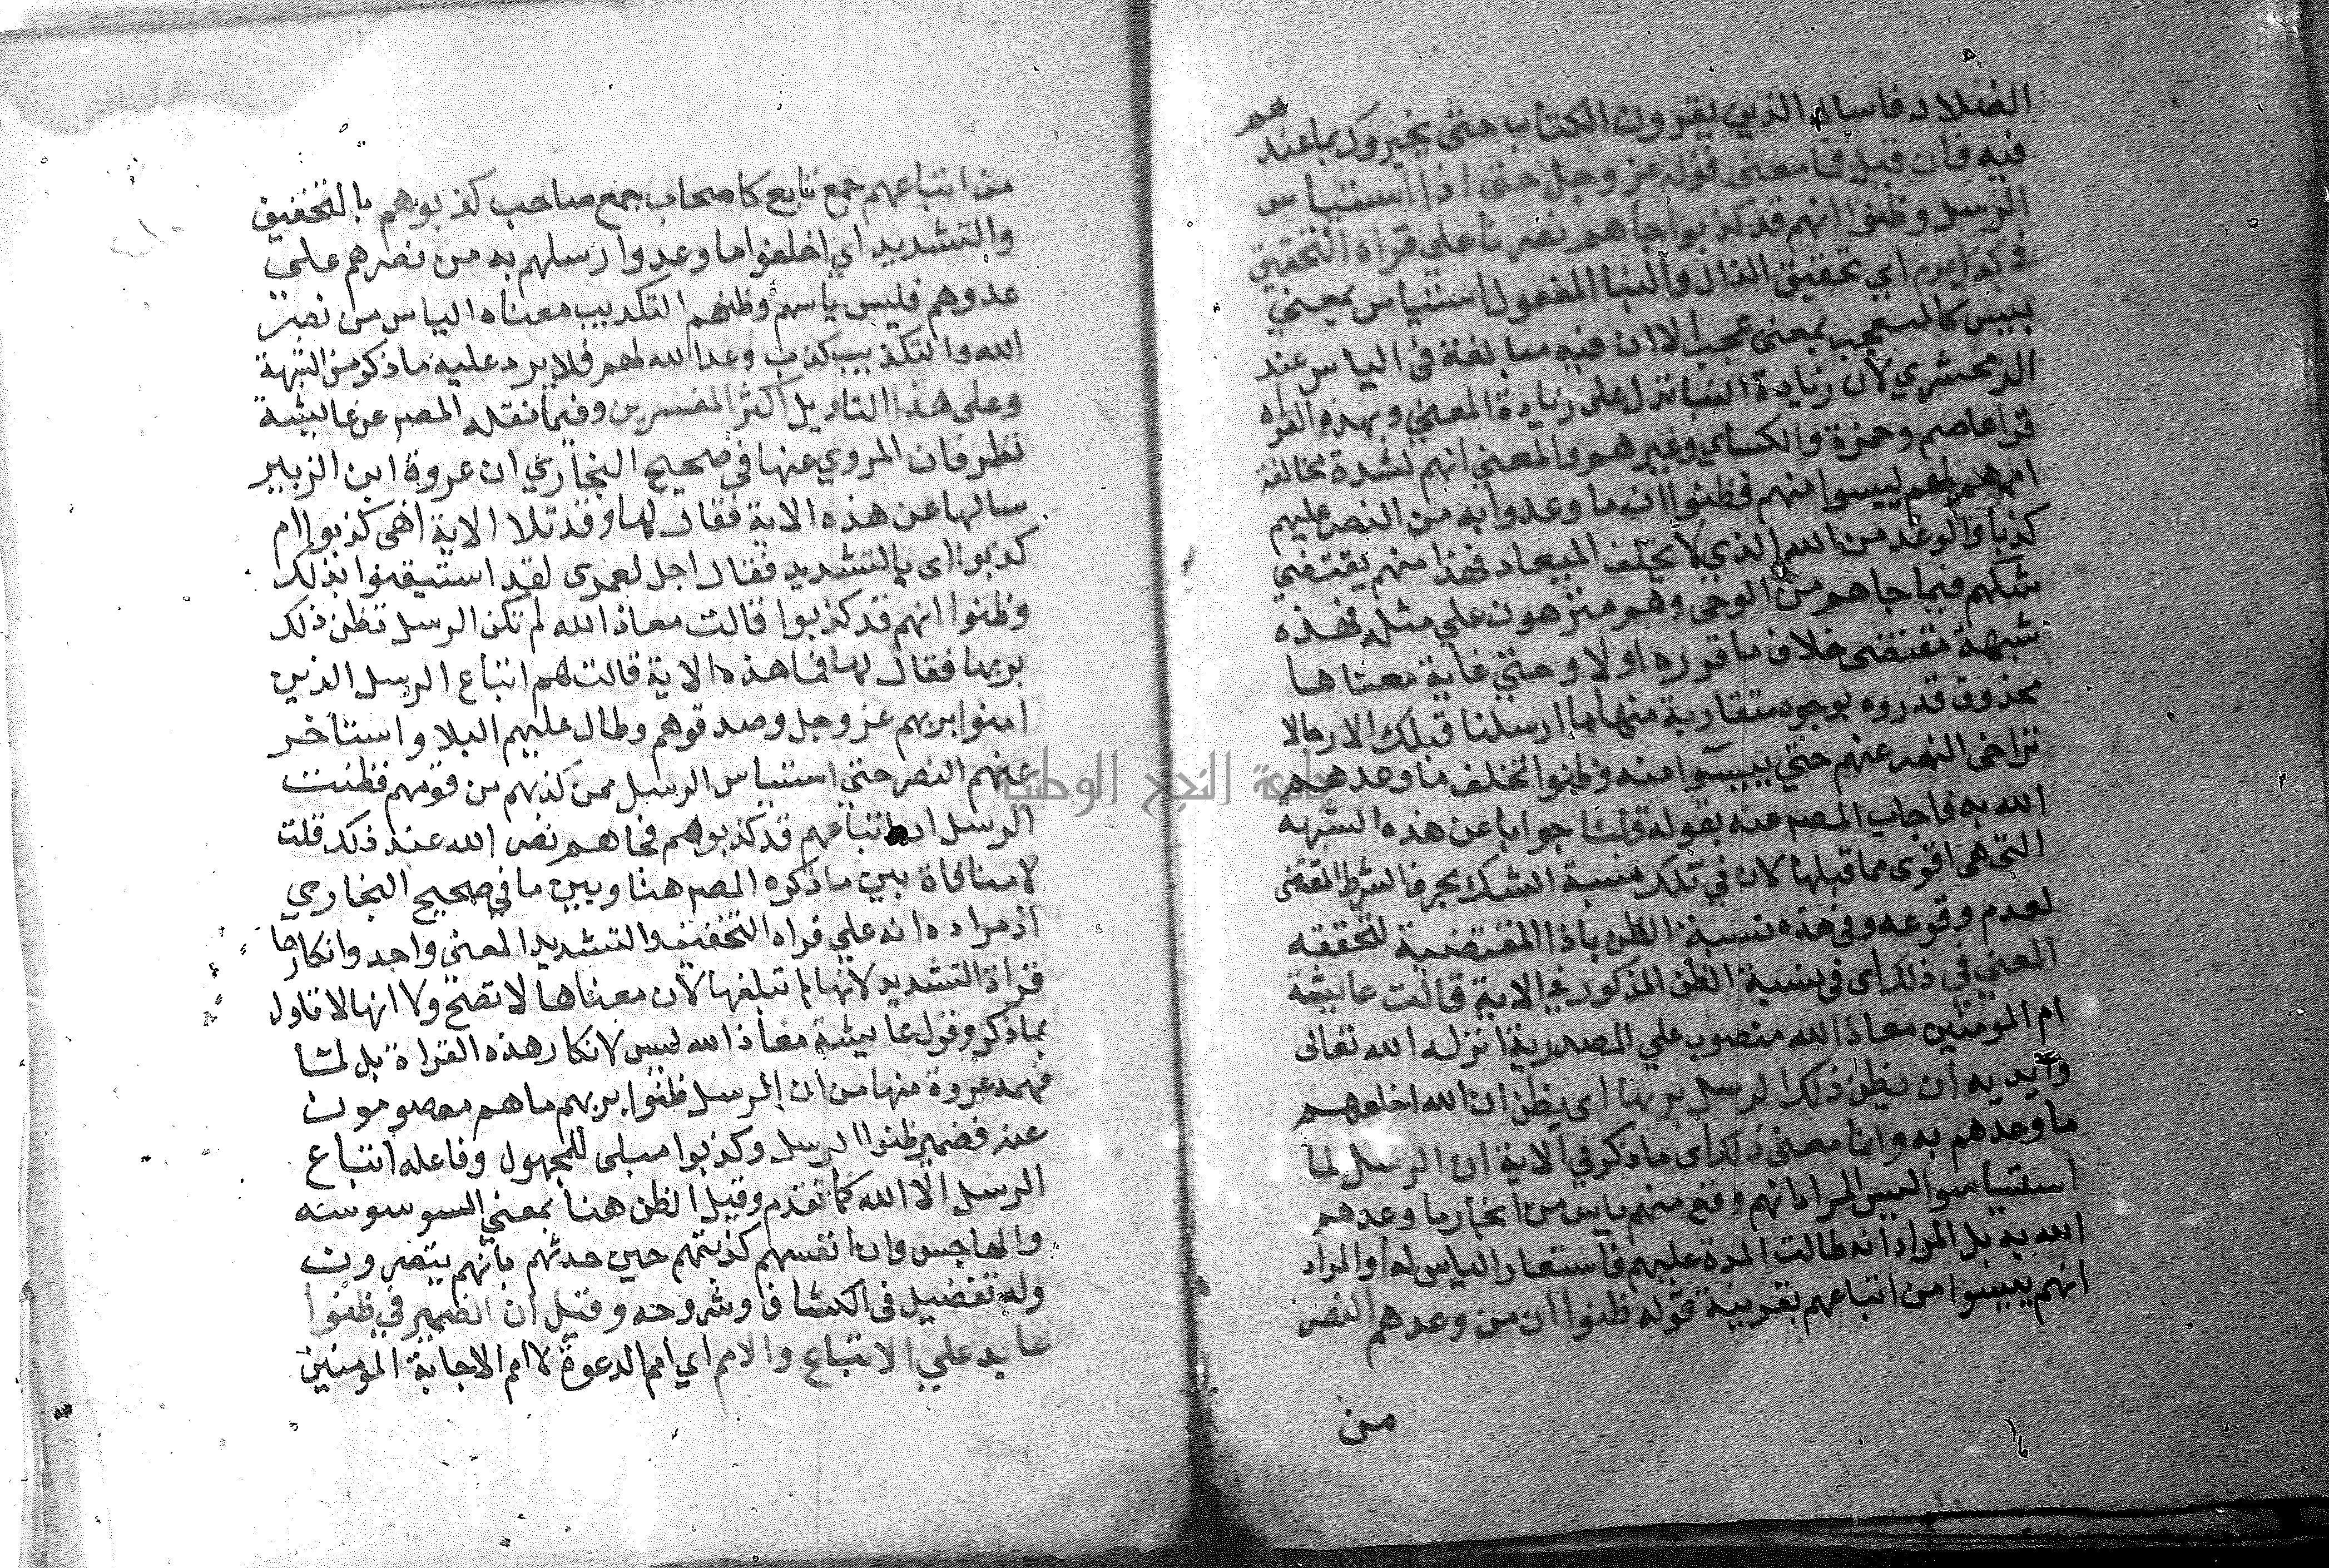 الضلال فاسال الذين يقرون الكتاب حتى يخبروك بما عندهم
فيه فان قيل فما معنى قوله عز وجل حتى اذا استياس
الرسل وظنوا انهم قد كذبوا جاهم نصرنا على قراه التخفيف
في كذبوا اي تخفيف الذال والبنا المفعول استياس بمعنى
ييس كاستعجب بمعنى عجب الا ان فيه مبالغة فى الياس عند
الزمخشري لان زيادة البنا تدل على زيادة المعنى وبهذه القراه
قرا عاصم وحمزة والكساي وغيرهم والمعنى انهم لشدة مخالفة
اممهم لهم ييسوا منهم فظنوا ان ما وعدوا به من النصر عليهم
كذبا والوعد من الله الذي لا يخلف الميعاد فهذا منهم يقتضي
شكهم فيما جاهم من الوحى وهم منزهون على مثله فهذه
شبهة مقتضى خلاف ما قرره اولا وحتى غاية معناها
محذوف قدروه بوجوه متقاربة منها ما ارسلنا قبلك الا رجالا
تراخى النصر عنهم حتى ييسوا منه وظنوا تخلف ما وعدهم
الله به فاجاب المصر عنه بقوله قلنا جوابا عن هذه الشبهه
التى هى اقوى مما قبلها لان في تلك نسبة الشك بحرف الشرط المقتضى
لعدم وقوعه وفى هذه نسبة الظن باذا المقتضية لتحققه
المعنى في ذلك اى فى نسبة الظن المذكور في الاية قالت عايشة
ام المومنين معاذ الله منصوب على المصدرية انزله الله تعالى
ان يظن ذلك الرسل بربها اى يظن ان الله اخلفهم
ما وعدهم به وانما معنى ذلك اى ما ذكر في الاية ان الرسل لما
استياسوا ليس المراد انهم وقع منهم ياس من انجاز ما وعدهم
الله به بل المراد انه طالت المدة عليهم فاستعار الياس له والمراد
انهم ييسوا من اتباعهم بقرينة قوله ظنوا ان من وعدهم النصر
من
من اتباعهم جمع تابع كاصحاب جمع صاحب كذبوهم بالتخفيف
والتشديد اي اخلفوا ما وعدوا رسلهم به من نصرهم على
عدوهم فليس ياسهم وظنهم التكذيب معناه الياس من نصر
الله والتكذيب كذب وعد الله لهم فلا يرد عليه ما ذكر من الشبهة
وعلى هذا التاويل اكثر المفسرين وفيما نقله المصر عن عايشة
نظر فان المروي عنها فى صحيح البخاري ان عروة ابن الزبير
سالها عن هذه الاية فقال لها وقد تلا الاية اهى كذبوا ام
كذبوا اى بالتشديد فقال اجل لعمرى لقد استيقنوا بذلك
وظنوا انهم قد كذبوا قالت معاذ الله لم تكن الرسل تظن ذلك
بربها فقال لها فما هذه الاية قالت هم اتباع الرسل الذين
امنوا بربهم عز وجل وصدقوهم وطال عليهم البلا واستاخر
عنهم النصر حتى استياس الرسل ممن كذبهم من قومهم فظنت
الرسل ان اتباعهم قد كذبوهم فجاهم نصر الله عند ذلك قلت
لا منافاة بين ما ذكره المصر هنا وبين ما في صحيح البخاري
اذ مراده انه على قراه التخفيف والتشديد المعنى واحد وانكارها
قراة التشديد لانها لم تبلغها لان معناها لا تصح ولا انها لا تاول
بما ذكر وقول عايشة معاذ الله ليس لانكار هذه القراة بل لما
فهمه عروة منها من ان الرسل ظنوا بربهم ما هم معصومون
عنه فضمير ظنوا الرسل وكذبوا مبنى للمجهول وفاعله اتباع
الرسل لا الله كما تقدم وقيل الظن هنا بمعنى الوسوسه
والهاجس وان انفسهم كذبتهم حين حدثهم بانهم ينصرون
وله تفصيل فى الكشاف وشروحه وقيل ان الضمير في ظنوا
عايد على الاتباع والامم اي امم الدعوة لا امم الاجابة المومنين
جامعة النجاح الوطنية